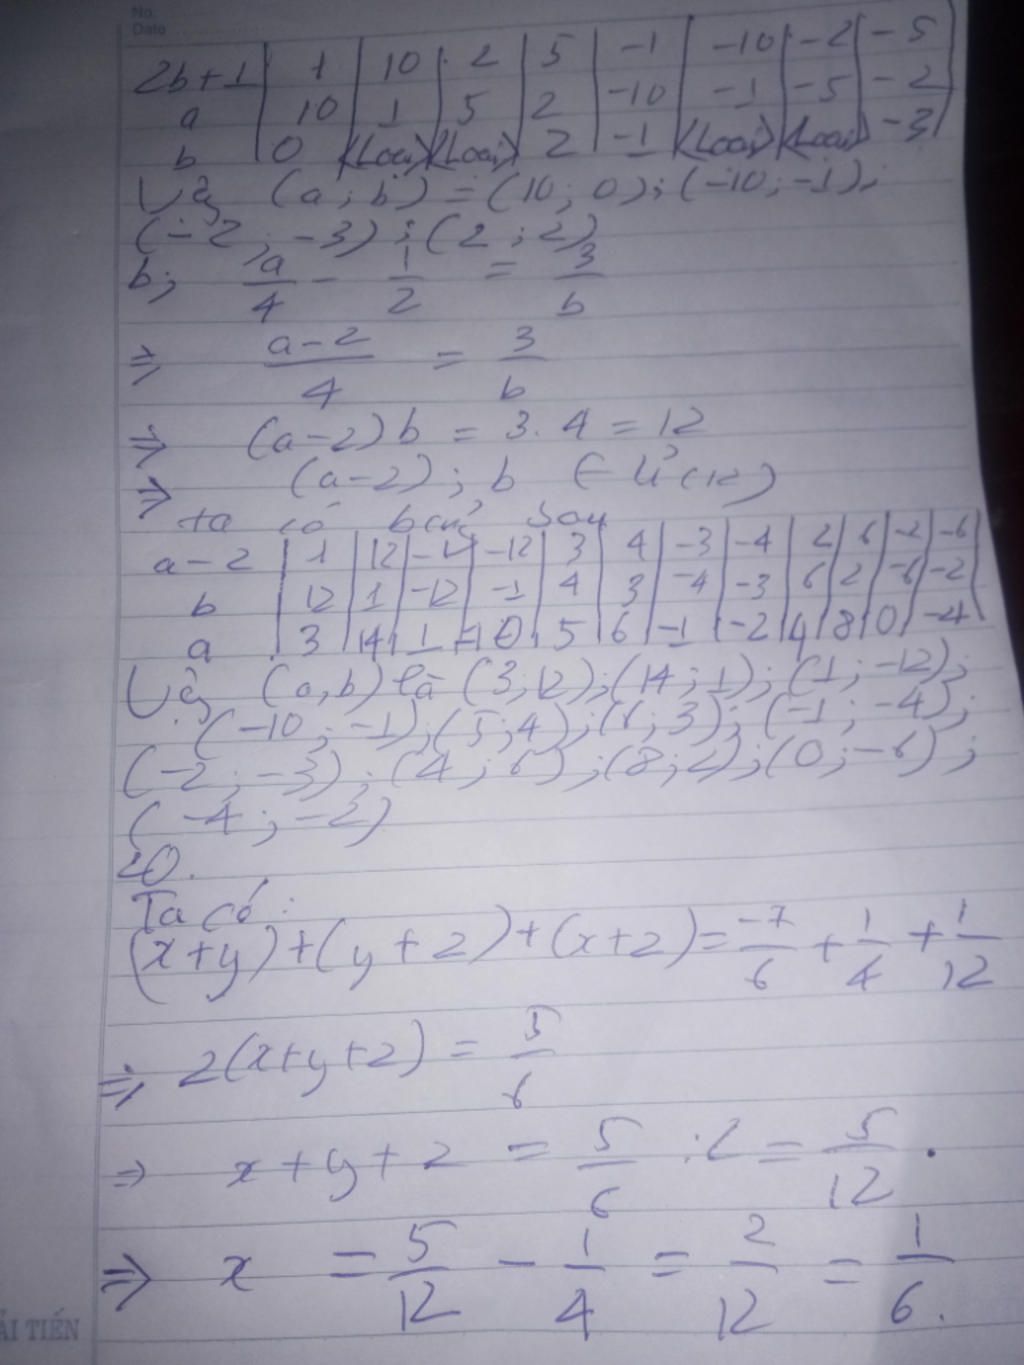 No.
Date
2b+1 | 1 | 10 | 2 | 5 | -1 | -10 | -2 | -5
a | 10 | 1 | 5 | 2 | -10 | -1 | -5 | -2
b | 0 | (Loại) | (Loại) | 2 | -1 | (Loại) | (Loại) | -3
Vậy (a;b) = (10; 0); (-10; -1);
(-2; -3); (2; 2)
b; a/4 - 1/2 = 3/b
⇒ a-2/4 = 3/b
⇒ (a-2)b = 3.4 = 12
⇒ (a-2); b ∈ Ư(12)
ta có bảng sau
a-2 | 1 | 12 | -1 | -12 | 3 | 4 | -3 | -4 | 2 | 6 | -2 | -6
b | 12 | 1 | -12 | -1 | 4 | 3 | -4 | -3 | 6 | 2 | -6 | -2
a | 3 | 14 | 1 | -10 | 5 | 6 | -1 | -2 | 4 | 8 | 0 | -4
Vậy (a,b) là (3;12); (14;1); (1; -12);
(-10; -1); (5;4); (6; 3); (-1; -4);
(-2; -3); (4; 6); (8; 2); (0; -6);
(-4; -2)
20.
Ta có:
(x+y)+(y+z)+(x+z) = -7/6 + 1/4 + 1/12
⇒ 2(x+y+z) = 5/6
⇒ x+y+z = 5/6 : 2 = 5/12.
⇒ x = 5/12 - 1/4 = 2/12 = 1/6.
ẢI TIẾN